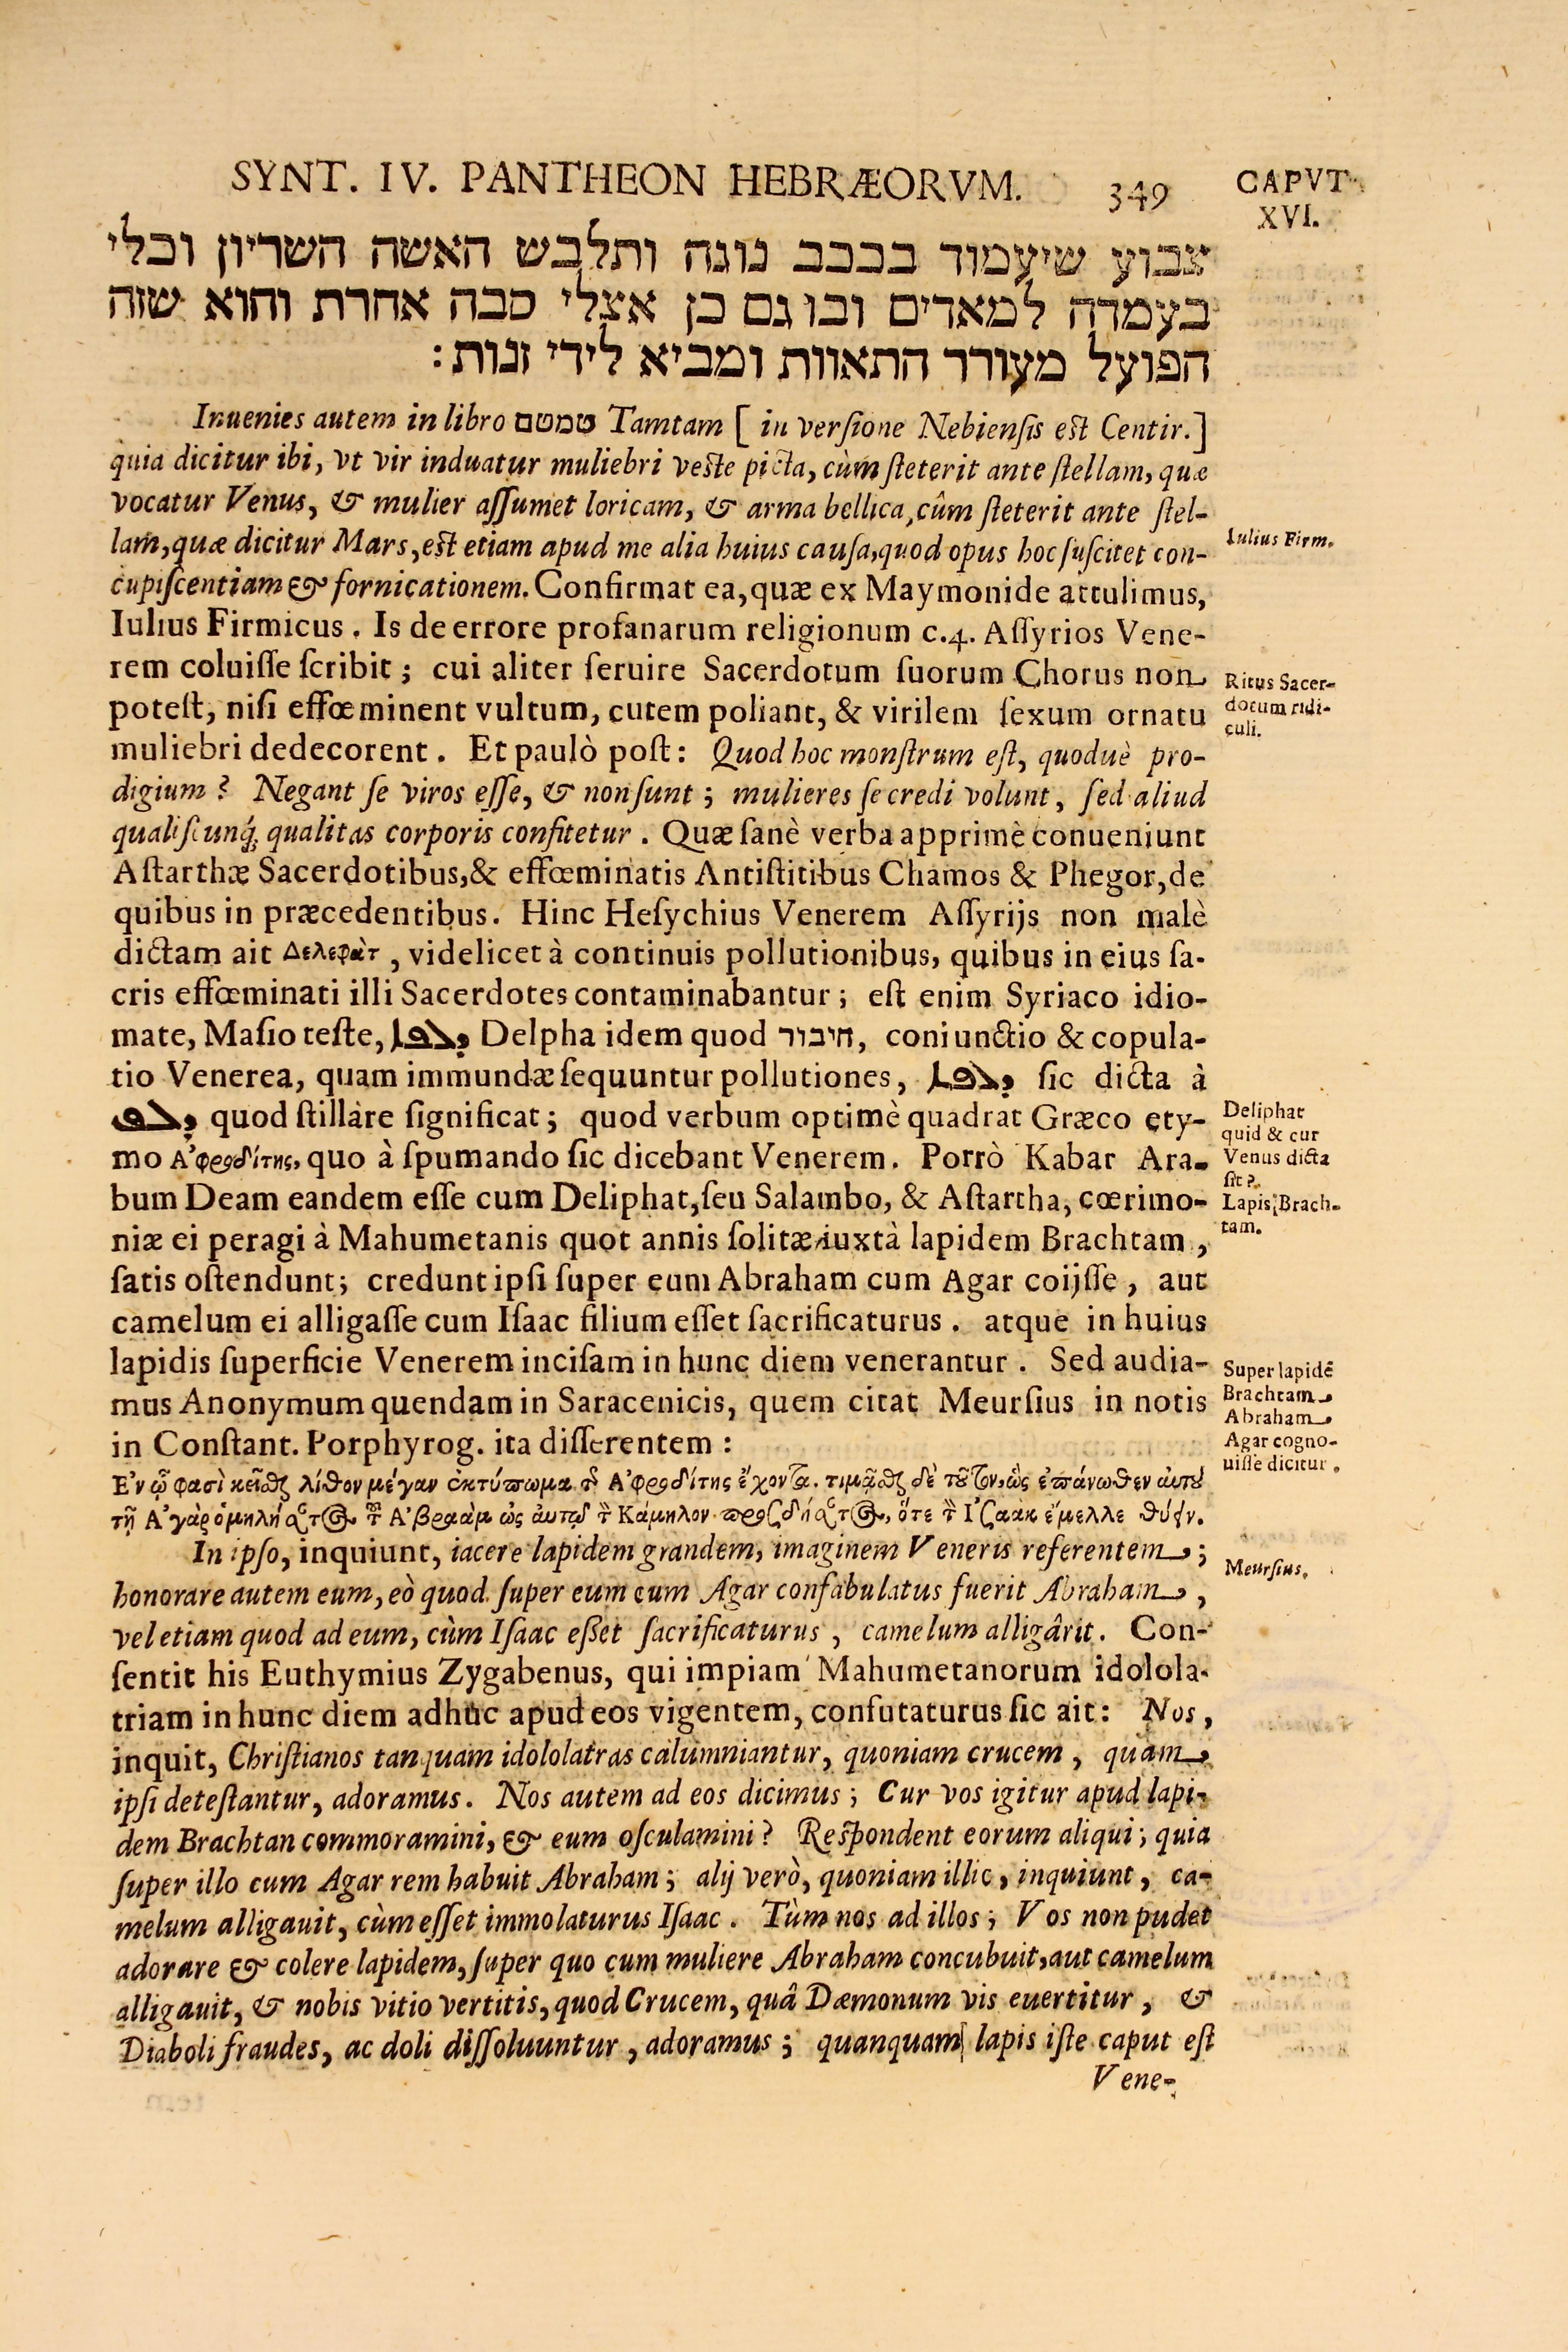 SYNT. IV. PANTHEON HEBRÆORVM. 349
CAPVT
XVI.
צבוע שיעמוד בככב נוגה ותלבש האשה השריון וכלי
בעמדה למאדים ובו גם כן אצלי סבה אחרת והוא שזה
הפועל מעורר התאוות ומביא לידי זנות:
Inuenies autem in libro טמטם Tamtam [ in verſione Nebienſis eſt Centir.]
quia dicitur ibi, vt vir induatur muliebri veſte picta, cùm ſteterit ante ſtellam, quæ
vocatur Venus, & mulier aſſumet loricam, & arma bellica, cûm ſteterit ante ſtel-
lam, quæ dicitur Mars, eſt etiam apud me alia huius cauſa, quod opus hoc ſuſcitet con-
cupiſcentiam & fornicationem. Confirmat ea, quæ ex Maymonide attulimus,
Iulius Firmicus. Is de errore profanarum religionum c.4. Aſſyrios Vene-
rem coluiſſe ſcribit; cui aliter ſeruire Sacerdotum ſuorum Chorus non
poteſt, niſi effœminent vultum, cutem poliant, & virilem ſexum ornatu
muliebri dedecorent. Et paulò poſt: Quod hoc monſtrum eſt, quoduè pro-
digium? Negant ſe viros eſſe, & non ſunt; mulieres ſe credi volunt, ſed aliud
qualiſcunq; qualitas corporis confitetur. Quæ ſanè verba apprimè conueniunt
Aſtarthæ Sacerdotibus, & effœminatis Antiſtitibus Chamos & Phegor, de
quibus in præcedentibus. Hinc Heſychius Venerem Aſſyrijs non malè
dictam ait Δελεφὰτ, videlicet à continuis pollutionibus, quibus in eius ſa-
cris effœminati illi Sacerdotes contaminabantur; eſt enim Syriaco idio-
mate, Maſio teſte, ܕܠܦܐ Delpha idem quod חיבור, coniunctio & copula-
tio Venerea, quam immundæ ſequuntur pollutiones, ܕܠܦܐ ſic dicta à
ܕܠܦ quod ſtillàre ſignificat; quod verbum optimè quadrat Græco ety-
mo Ἀφροδίτης, quo à ſpumando ſic dicebant Venerem. Porrò Kabar Ara-
bum Deam eandem eſſe cum Deliphat, ſeu Salambo, & Aſtartha, cœrimo-
niæ ei peragi à Mahumetanis quot annis ſolitæ iuxtà lapidem Brachtam,
ſatis oſtendunt; credunt ipſi ſuper eum Abraham cum Agar coijſſe, aut
camelum ei alligaſſe cum Iſaac filium eſſet ſacrificaturus. atque in huius
lapidis ſuperficie Venerem inciſam in hunc diem venerantur. Sed audia-
mus Anonymum quendam in Saracenicis, quem citat Meurſius in notis
in Conſtant. Porphyrog. ita diſſerentem:
Ἐν ᾧ φασὶ κεῖσθαι λίθον μέγαν ἐκτύπωμα τῆς Ἀφροδίτης ἔχοντα. τιμᾶσθαι δὲ τοῦτον, ὡς ἐπάνωθεν αὐτοῦ
τῇ Ἀγὰρ ὁμιλήσαντος τοῦ Ἀβραὰμ ὡς αὐτῷ τὴν Κάμηλον προσδήσαντος, ὅτε τὸν Ἰσαὰκ ἔμελλε θύειν.
In ipſo, inquiunt, iacere lapidem grandem, imaginem Veneris referentem;
honorare autem eum, eò quod ſuper eum cum Agar confabulatus fuerit Abraham,
vel etiam quod ad eum, cùm Iſaac eſſet ſacrificaturus, camelum alligârit. Con-
ſentit his Euthymius Zygabenus, qui impiam Mahumetanorum idolola-
triam in hunc diem adhuc apud eos vigentem, confutaturus ſic ait: Nos,
inquit, Chriſtianos tanquam idololatras calumniantur, quoniam crucem, quam
ipſi deteſtantur, adoramus. Nos autem ad eos dicimus; Cur vos igitur apud lapi-
dem Brachtan commoramini, & eum oſculamini? Reſpondent eorum aliqui; quia
ſuper illo cum Agar rem habuit Abraham; alij verò, quoniam illic, inquiunt, ca-
melum alligauit, cùm eſſet immolaturus Iſaac. Tùm nos ad illos; Vos non pudet
adorare & colere lapidem, ſuper quo cum muliere Abraham concubuit, aut camelum
alligauit, & nobis vitio vertitis, quod Crucem, quâ Dæmonum vis euertitur, &
Diaboli fraudes, ac doli diſſoluuntur, adoramus; quanquam lapis iſte caput eſt
Vene-
Iulius Firm.
Ritus Sacer-
dotum ridi-
culi.
Deliphat
quid & cur
Venus dicta
ſit?
Lapis Brach-
tam.
Super lapidẽ
Brachtam
Abraham
Agar cogno-
uiſſe dicitur.
Meurſius.